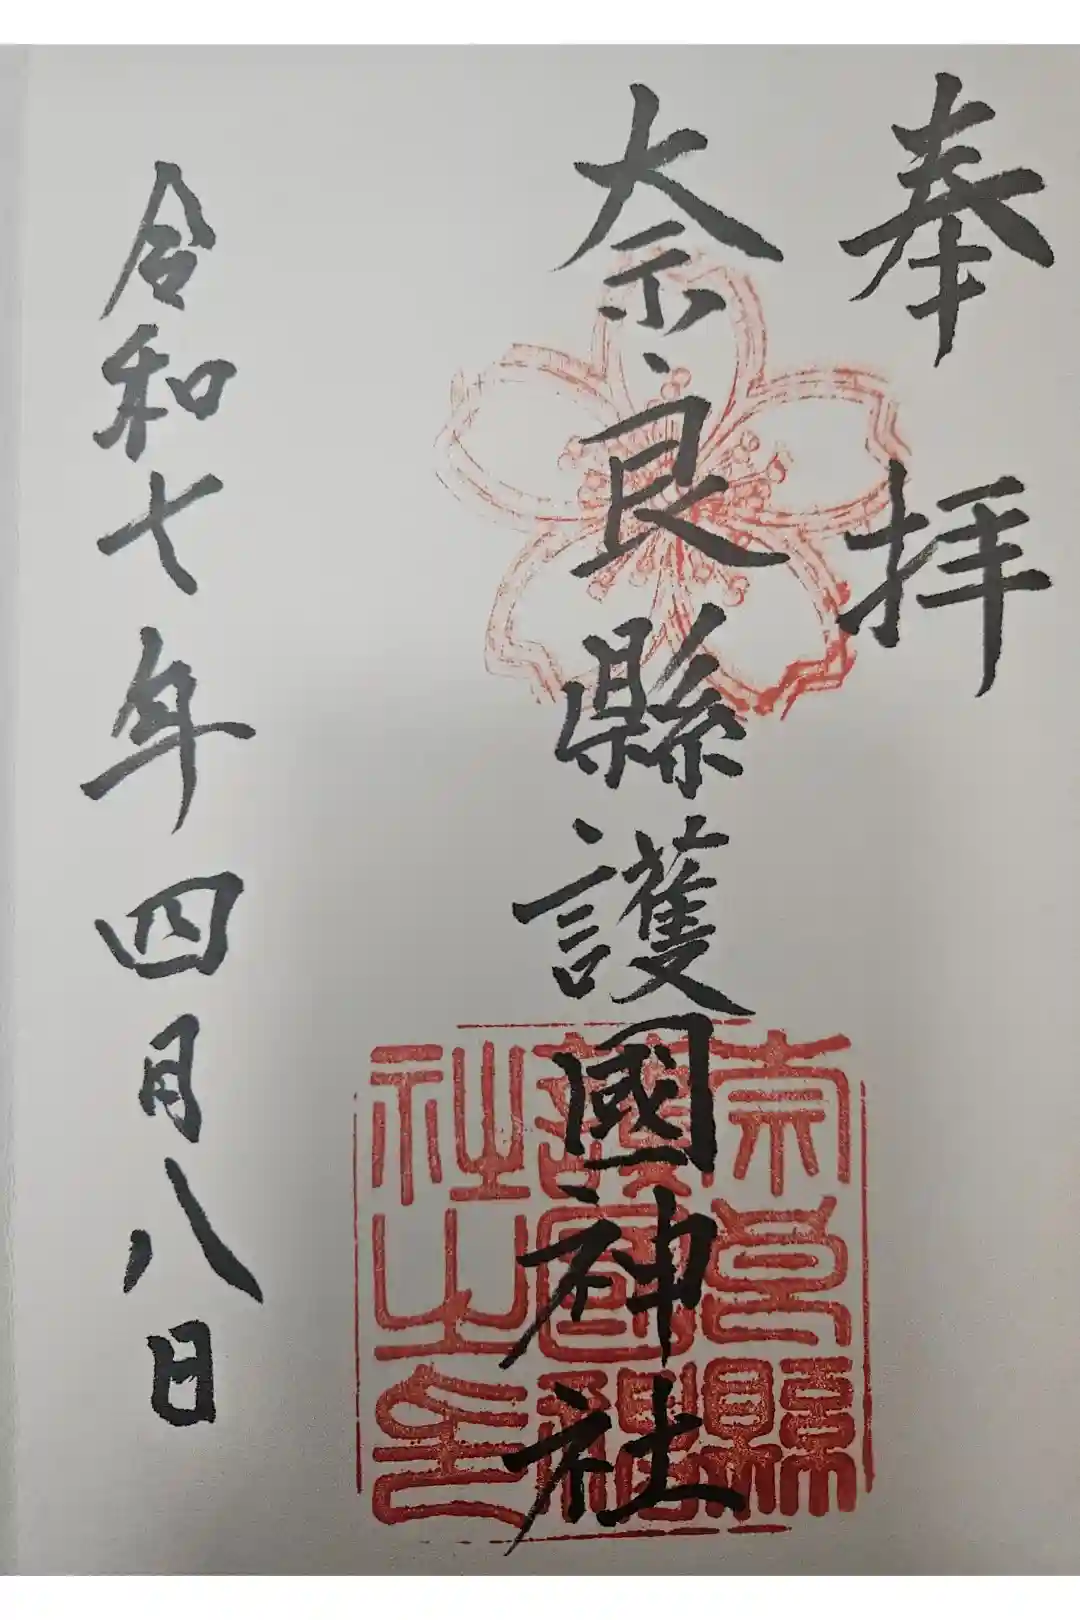 奉拝
奈良縣護國神社
奈良縣
護國神
社之印
令和七年四月八日